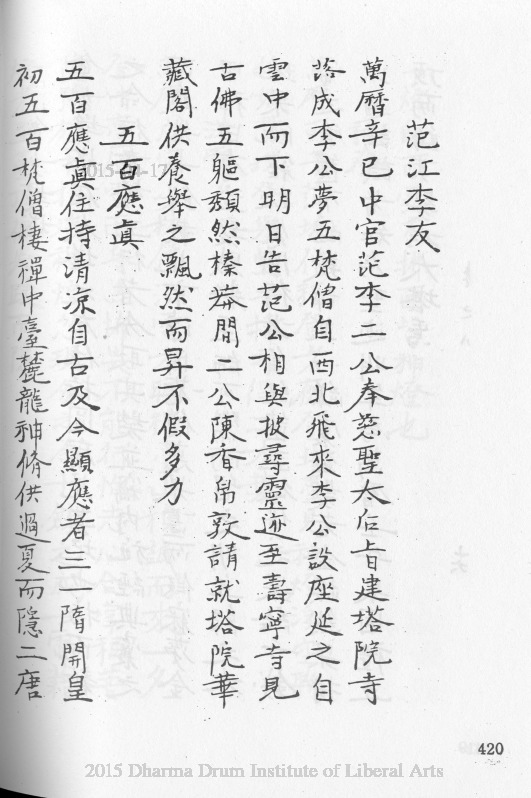 范江李友
萬曆辛巳中官范李二公奉慈聖太后旨建塔院寺
落成李公夢五梵僧自西北飛來李公設座延之自
雲中而下明日告范公相與披尋靈迹至壽寧寺見
古佛五軀頹然榛莽間二公陳香帛敦請就塔院華
藏閣供養舉之飄然而昇不假多力
五百應眞
五百應眞住持清凉自古及今顯應者三一隋開皇
初五百梵僧棲禪中臺麓龍神脩供過夏而隱二唐
420
2015 Dharma Drum Institute of Liberal Arts